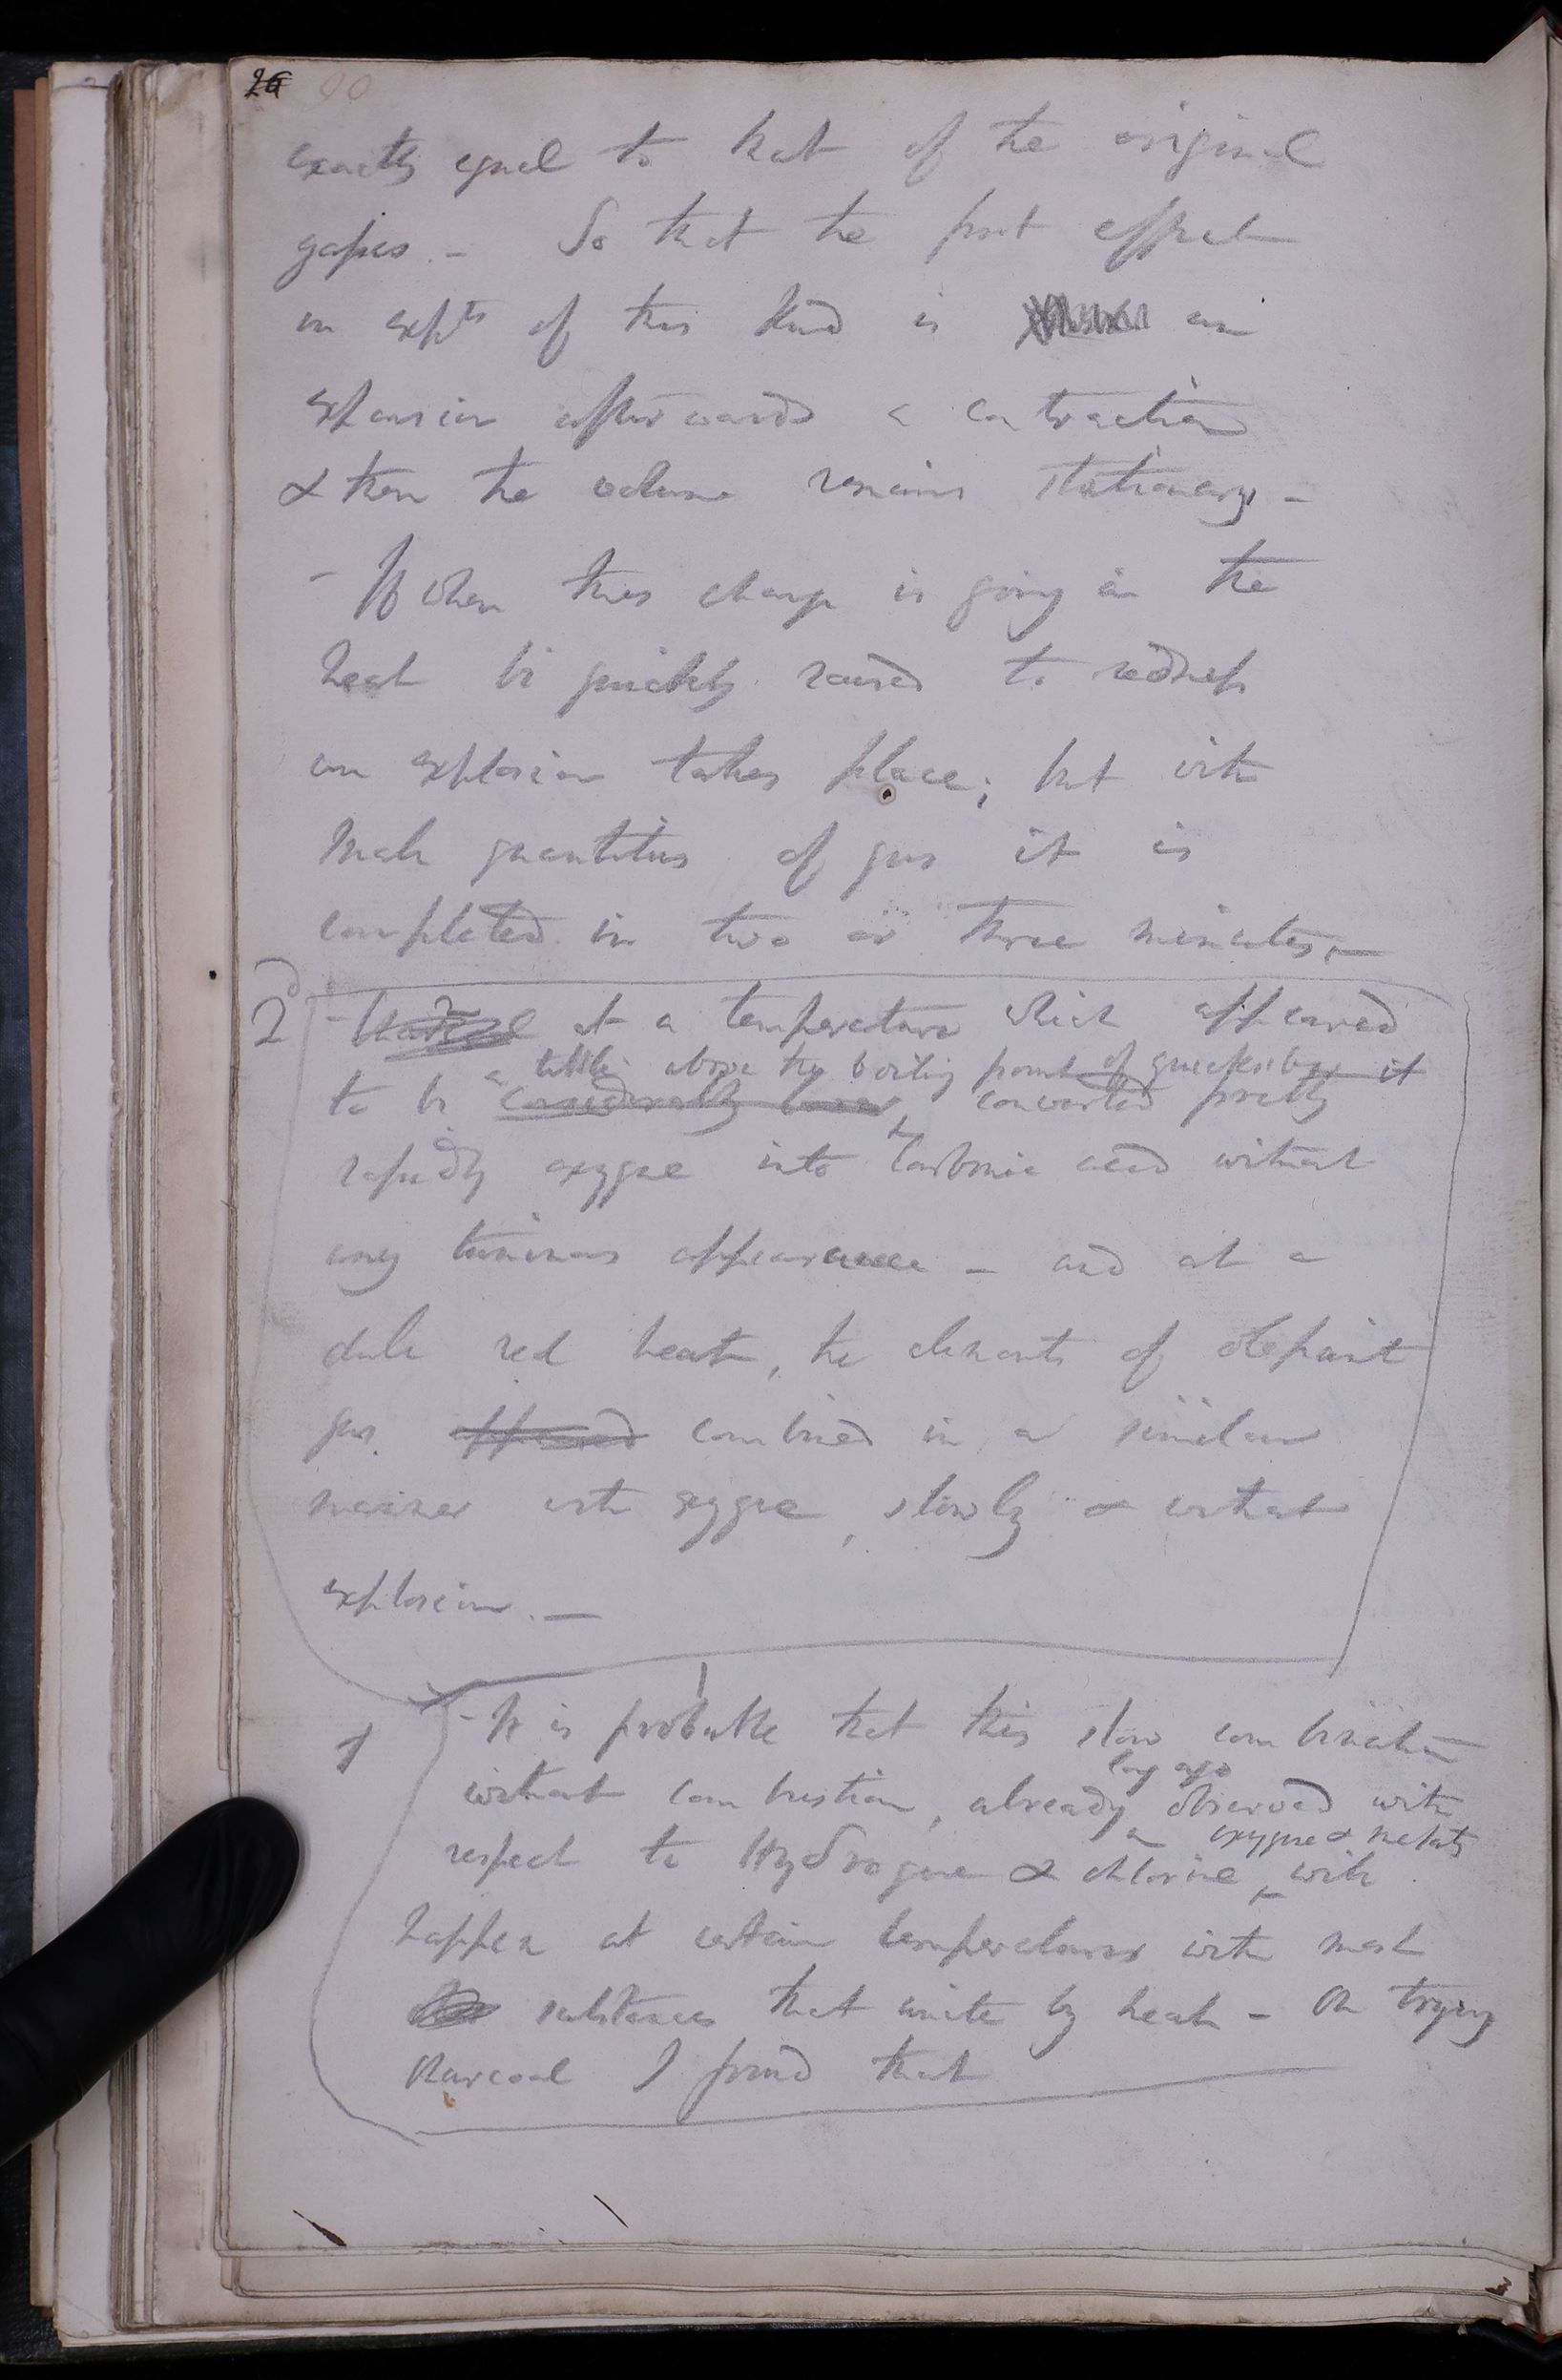 26 90
exactly equal to that of the original
gasses. - So that the first effect
in expts of this kind is an
expansion afterwards a contraction
& then the volume remains stationary -
- If when this change is going on the
heat be quickly raised to redness
an explosion takes place; but with
small quantities of gas it is
completed in two or three minutes. -
2 - Charcoal at a temperature which appeared
a little above the boiling point of quicksilver it
to be considerably lower converted pretty
rapidly oxygene into Carbonic acid without
any luminous appearance - and at a
dull red heat, the elements of olefiant
gas appeared combined in a similar
manner with oxygene, slowly & without
explosion. -
1 - It is probable that this slow combination
long ago
without combustion, already observed with
oxygene & metals
respect to Hydrogene & chlorine, will
happen at certain temperatures with most
substances that unite by heat - On trying
charcoal I found that